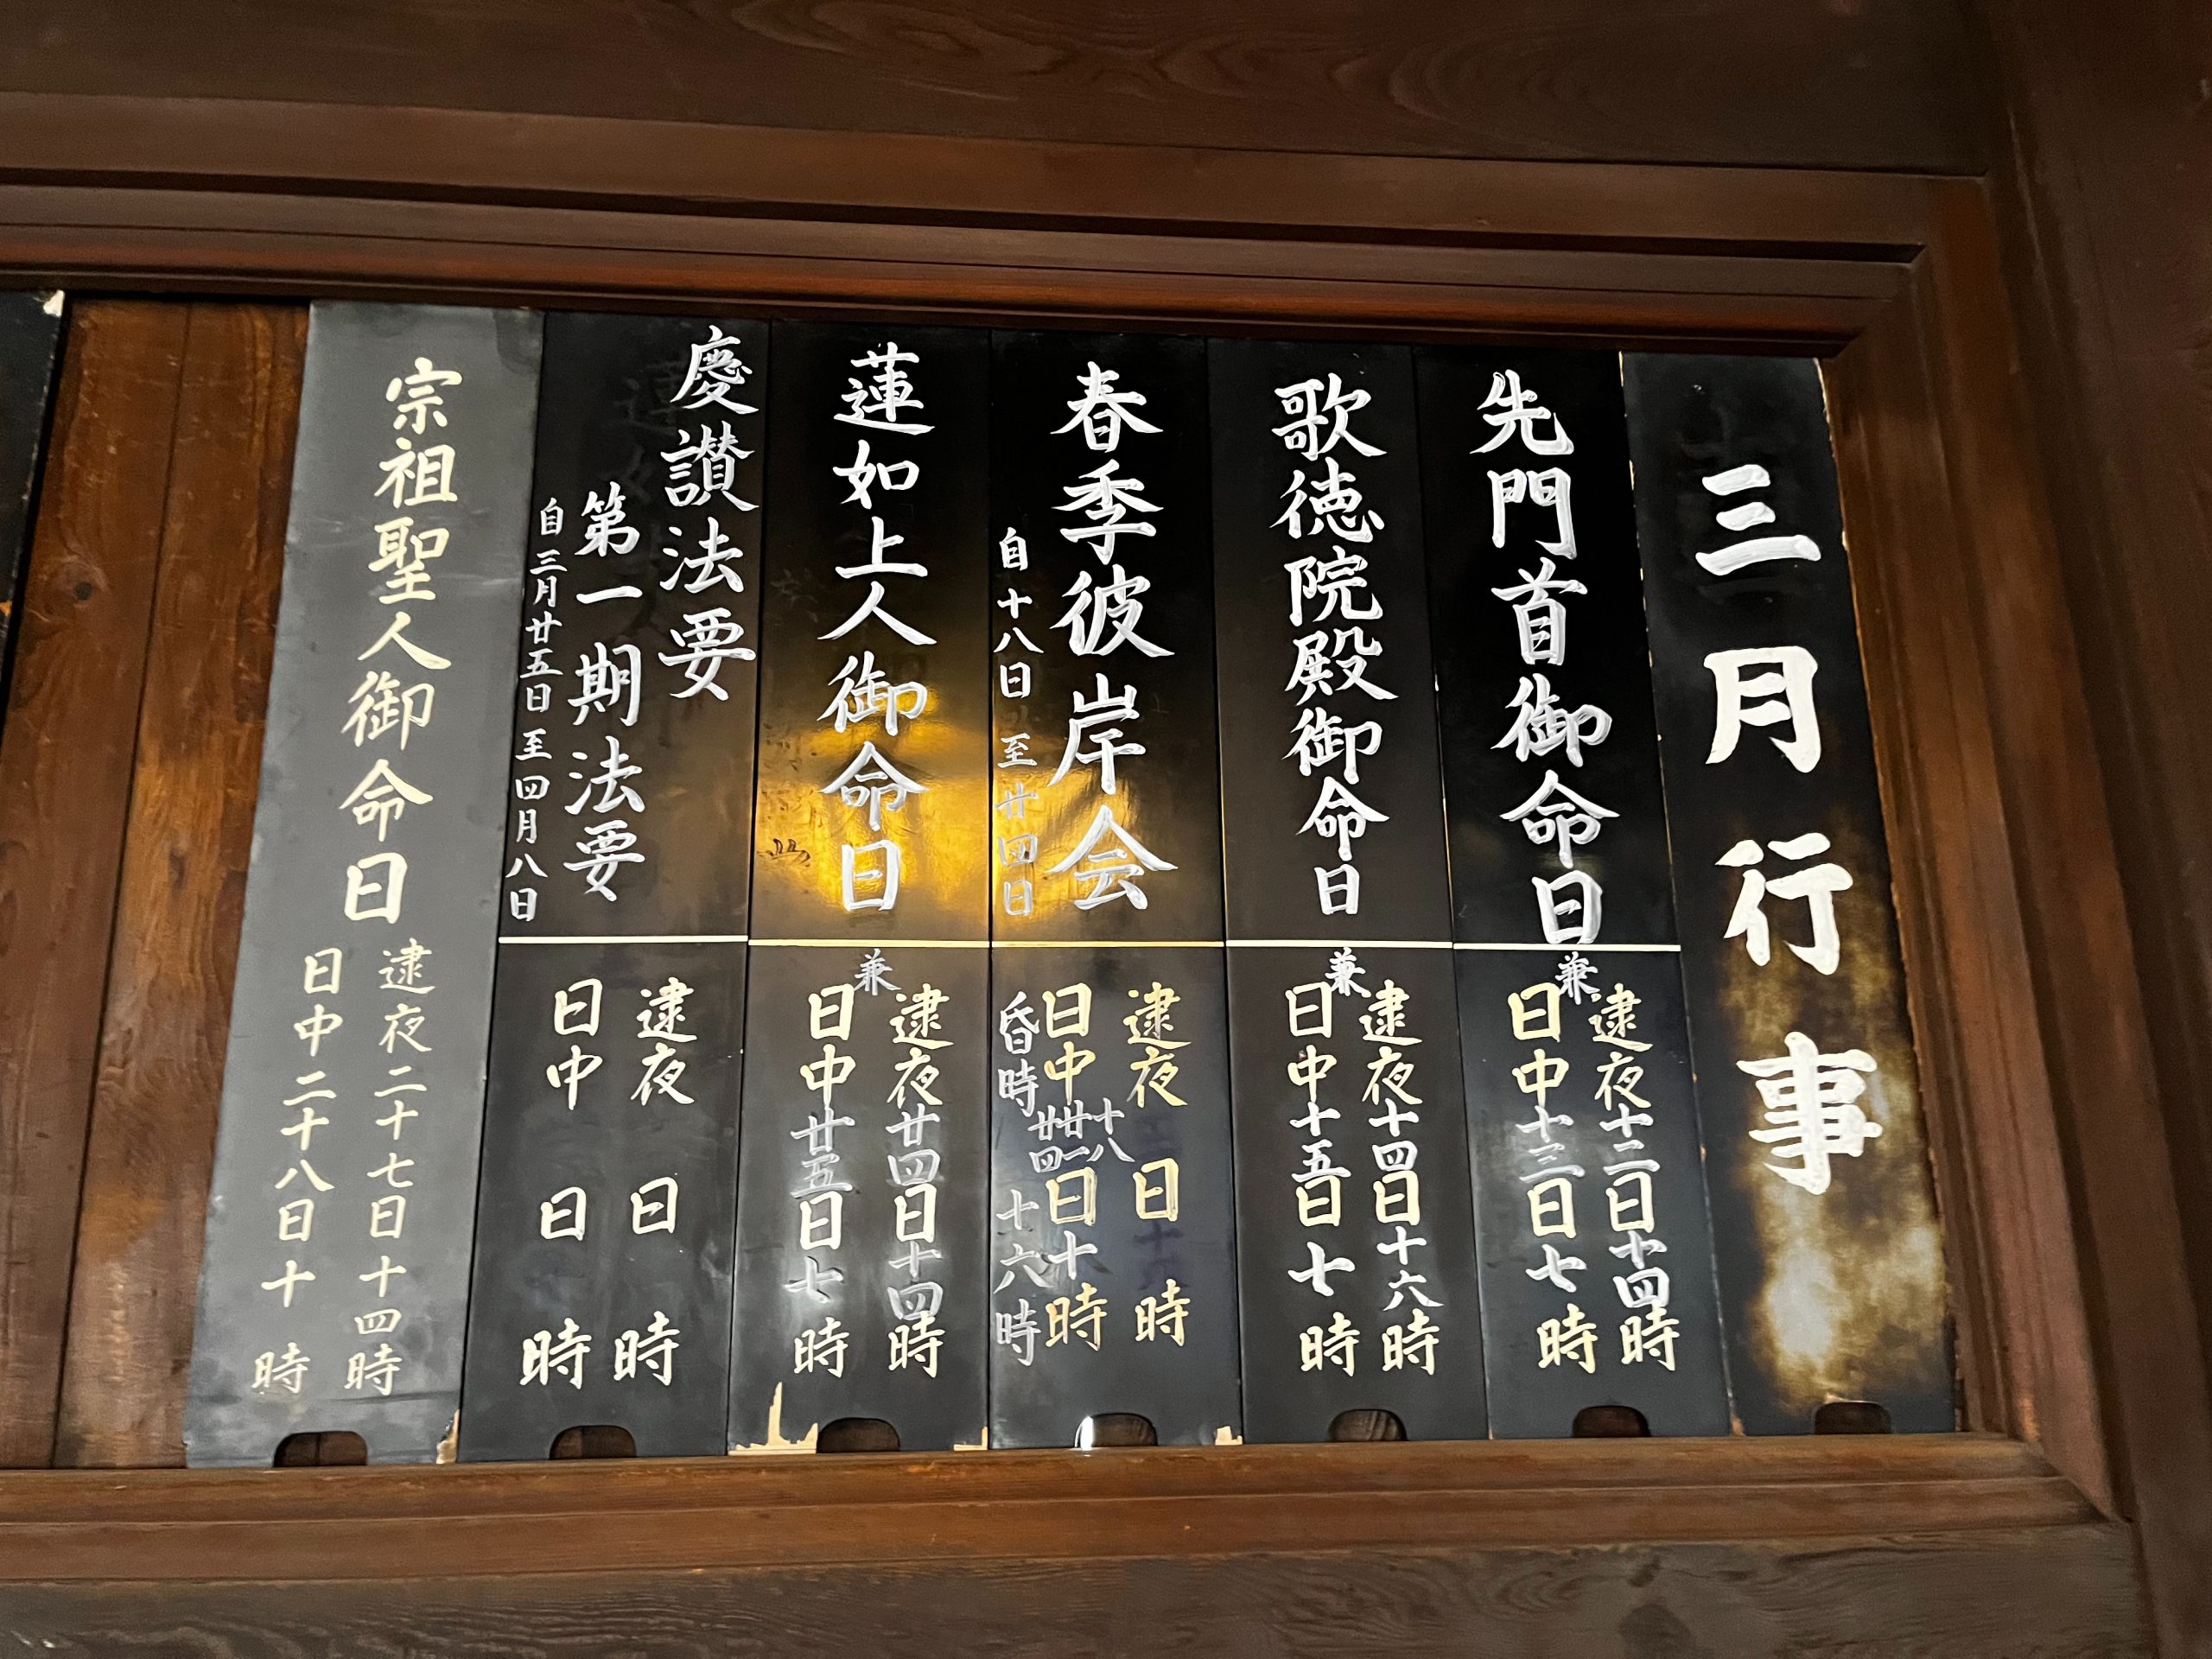 三月行事
先門首御命日
兼
逮夜十二日十四時
日中十三日七時
歌徳院殿御命日
兼
逮夜十四日十六時
日中十五日七時
春季彼岸会
自十八日 至廿四日
逮夜 日 時
日中 十八 廿一 廿四 日十時
昏時 十六時
蓮如上人御命日
兼
逮夜廿四日十四時
日中廿五日七時
慶讃法要
第一期法要
自三月廿五日 至四月八日
逮夜 日 時
日中 日 時
宗祖聖人御命日
逮夜二十七日十四時
日中二十八日十時